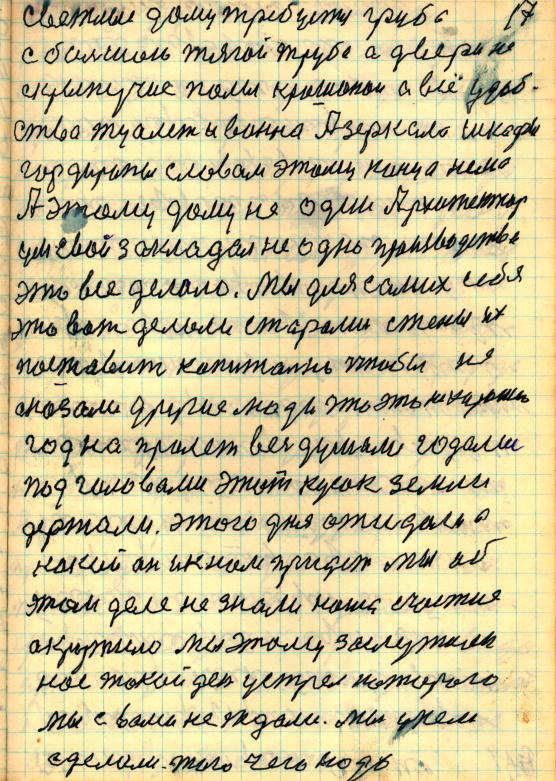 светлые дому требуеты труба 17
с большой тягой труба а двери не
скрыпучие полы крашоной а всё удоб-
ства туалеты ванна Азеркала шкафы
гордиропы словам этому конца нема
А этому дому не один Архитектор
ум свой закладал не одно производство
это все делало. Мы для самих себя
это вот делали старались стены их
поставит капитално чтобы не
сказали другие люди это это не хороши
год на пролет все думали годами
под головами этот кусок земли
держали. этого дня ожидали а
какой он к нам придет мы об
этом деле не знали наше счастие
окружило мы этому заслужили
нас такой ден устрел которого
мы с вами не ждали. мы умом
сделали. того чего надо